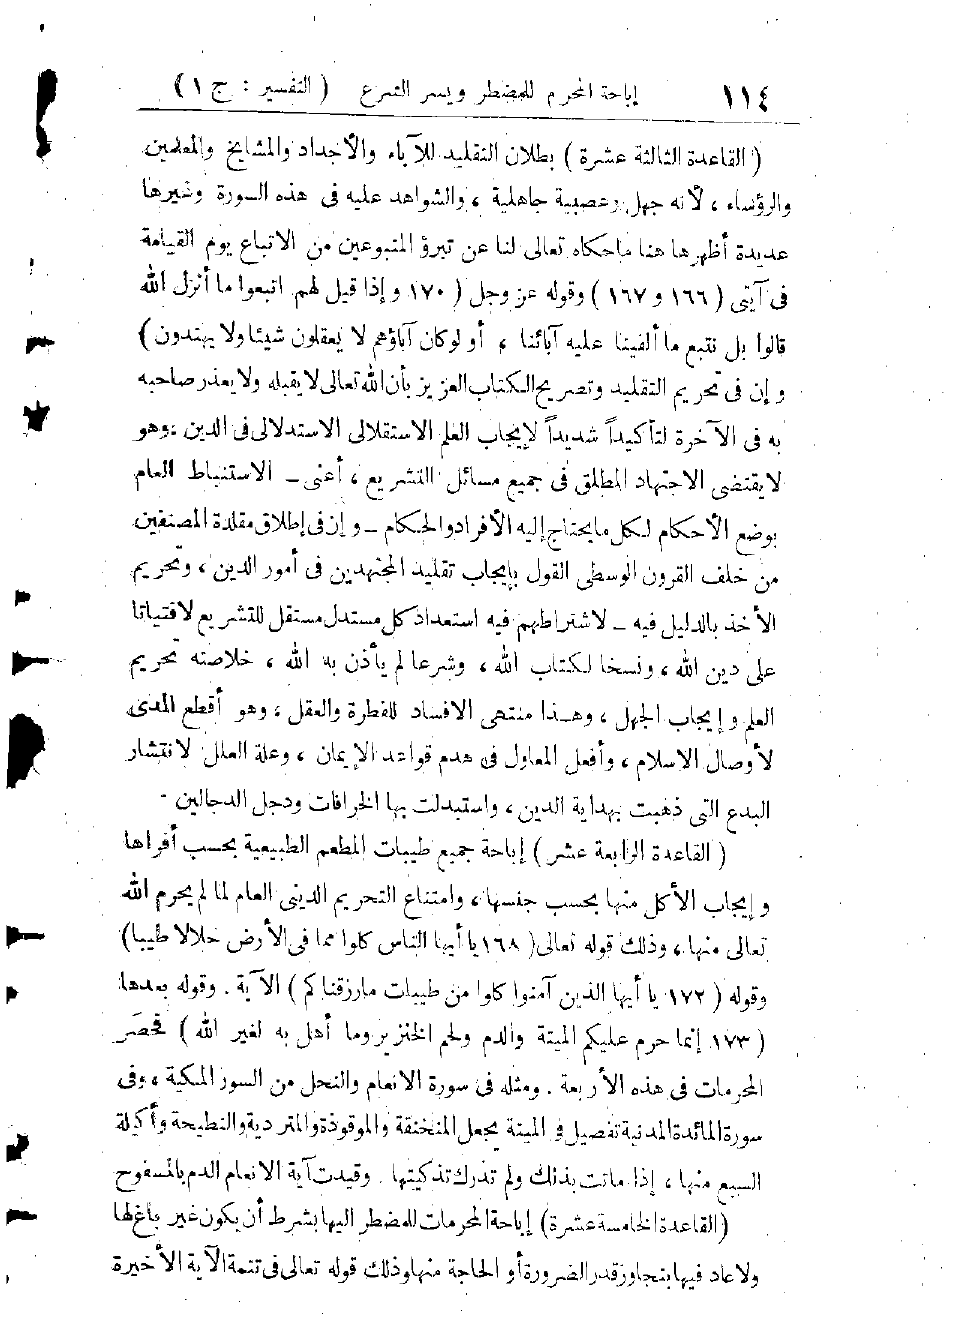 ١١٤ إباحة المحرم للمضطر ويسر الشرع ( التفسير : ج ١ )
( القاعدة الثالثة عشرة ) بطلان التقليد للآباء والأجداد والمشايخ والمعلمين
والرؤساء ، لأنه جهل وعصبية جاهلية ، والشواهد عليه في هذه السورة وغيرها
عديدة أظهرها هنا ماحكاه تعالى لنا عن تبرؤ المتبوعين من الاتباع يوم القيامة
في آيتي ( ١٦٦ و ١٦٧ ) وقوله عز وجل ( ١٧٠ وإذا قيل لهم اتبعوا ما أنزل الله
قالوا بل نتبع ما ألفينا عليه آبائنا ، أو لو كان آباؤهم لا يعقلون شيئا ولا يهتدون )
وإن في تحريم التقليد وتصريح الكتاب العزيز بأن الله تعالى لا يقبله ولا يعذر صاحبه
به في الآخرة لتأكيداً شديداً لإيجاب العلم الاستقلالي الاستدلالي في الدين ، وهو
لا يقتضي الاجتهاد المطلق في جميع مسائل التشريع ، أعني ــ الاستنباط العام
بوضع الأحكام لكل ما يحتاج إليه الأفراد والحكام ــ وإن في إطلاق مقلدة المصنفين
من خلف القرون الوسطى القول بإيجاب تقليد المجتهدين في أمور الدين ، وتحريم
الأخذ بالدليل فيه ــ لاشتراطهم فيه استعداد كل مستدل مستقل للتشريع لافتياتا
على دين الله ، ونسخا لكتاب الله ، وشرعا لم يأذن به الله ، خلاصته تحريم
العلم وإيجاب الجهل ، وهذا منتهى الافساد للفطرة والعقل ، وهو أقطع المدى
لأوصال الاسلام ، وأفعل المعاول في هدم قواعد الإيمان ، وعلة العلل لانتشار
البدع التي ذهبت بهداية الدين ، واستبدلت بها الخرافات ودجل الدجالين ·
( القاعدة الرابعة عشر ) إباحة جميع طيبات المطعم الطبيعية بحسب أفراها
وإيجاب الأكل منها بحسب جنسها ، وامتناع التحريم الديني العام لما لم يحرم الله
تعالى منها ، وذلك قوله تعالى ( ١٦٨ يا أيها الناس كلوا مما في الأرض حلالا طيبا )
وقوله ( ١٧٢ يا أيها الذين آمنوا كلوا من طيبات مارزقناكم ) الآية . وقوله بعدها
( ١٧٣ إنما حرم عليكم الميتة والدم ولحم الخنزير وما أهل به لغير الله ) فحصَر
المحرمات في هذه الأربعة . ومثله في سورة الانعام والنحل من السور المكية ، وفي
سورة المائدة المدنية تفصيل في الميتة بجعل المنخنقة والموقوذة والمتردية والنطيحة وأكيلة
السبع منها ، إذا ماتت بذلك ولم تدرك تذكيتها . وقيدت آية الانعام الدم بالمسفوح
( القاعدة الخامسة عشرة ) إباحة المحرمات للمضطر اليها بشرط أن يكون غير باغ لها
ولا عاد فيها بتجاوز قدر الضرورة أو الحاجة منها وذلك قوله تعالى في تتمة الآية الأخيرة